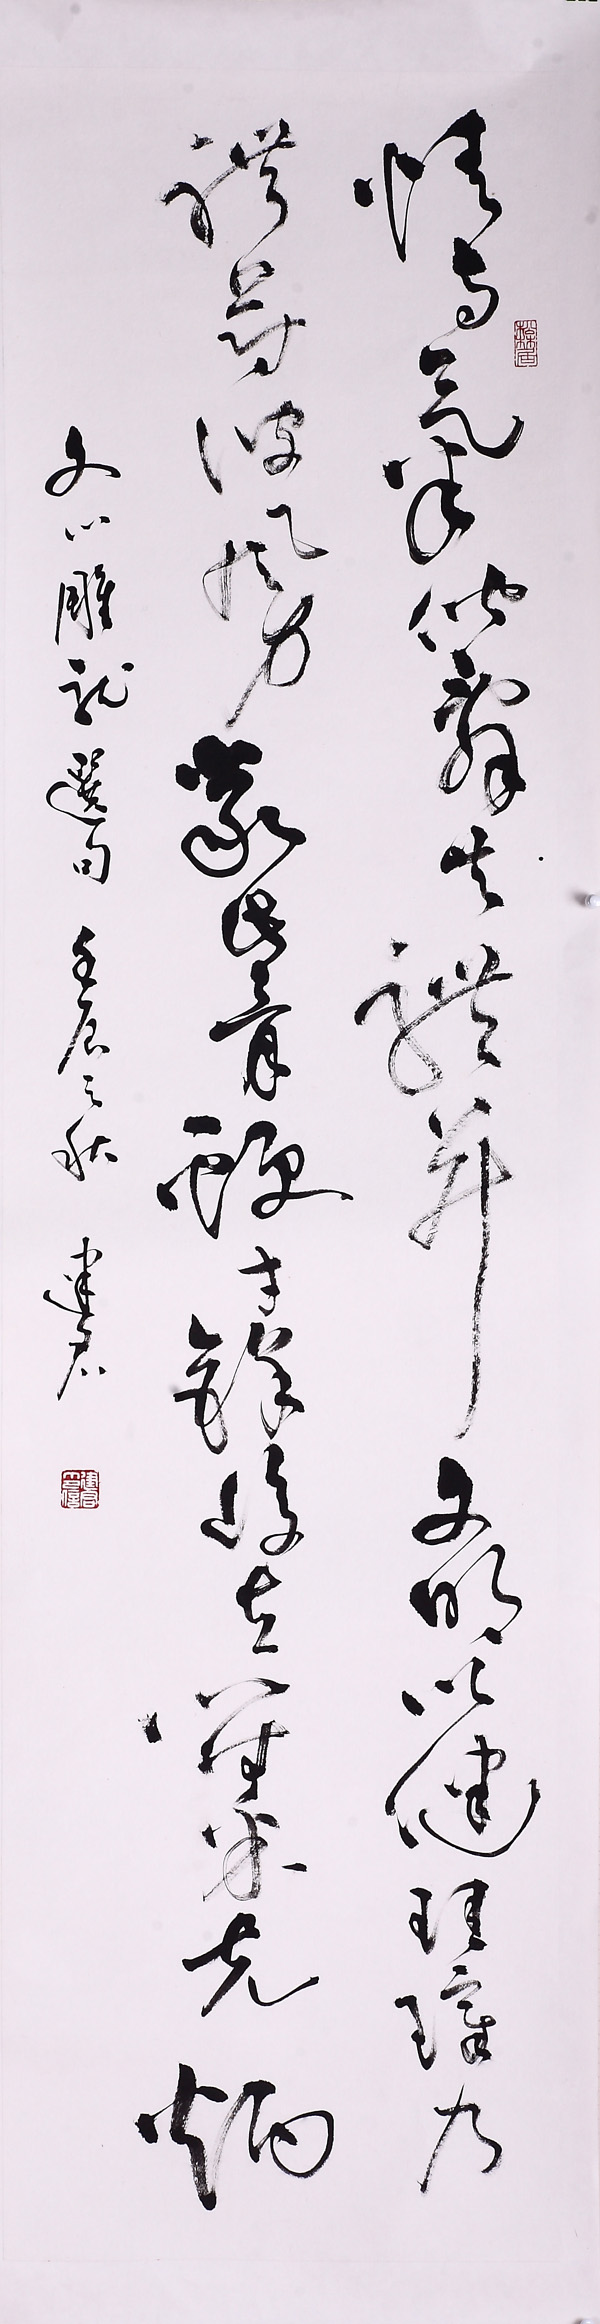 情与氣偕辭共體并文明以健珪璋乃
蔚彼風力嚴此骨鯁才鋒峻立符采克炳
文心雕龍選句 壬辰之秋 建君